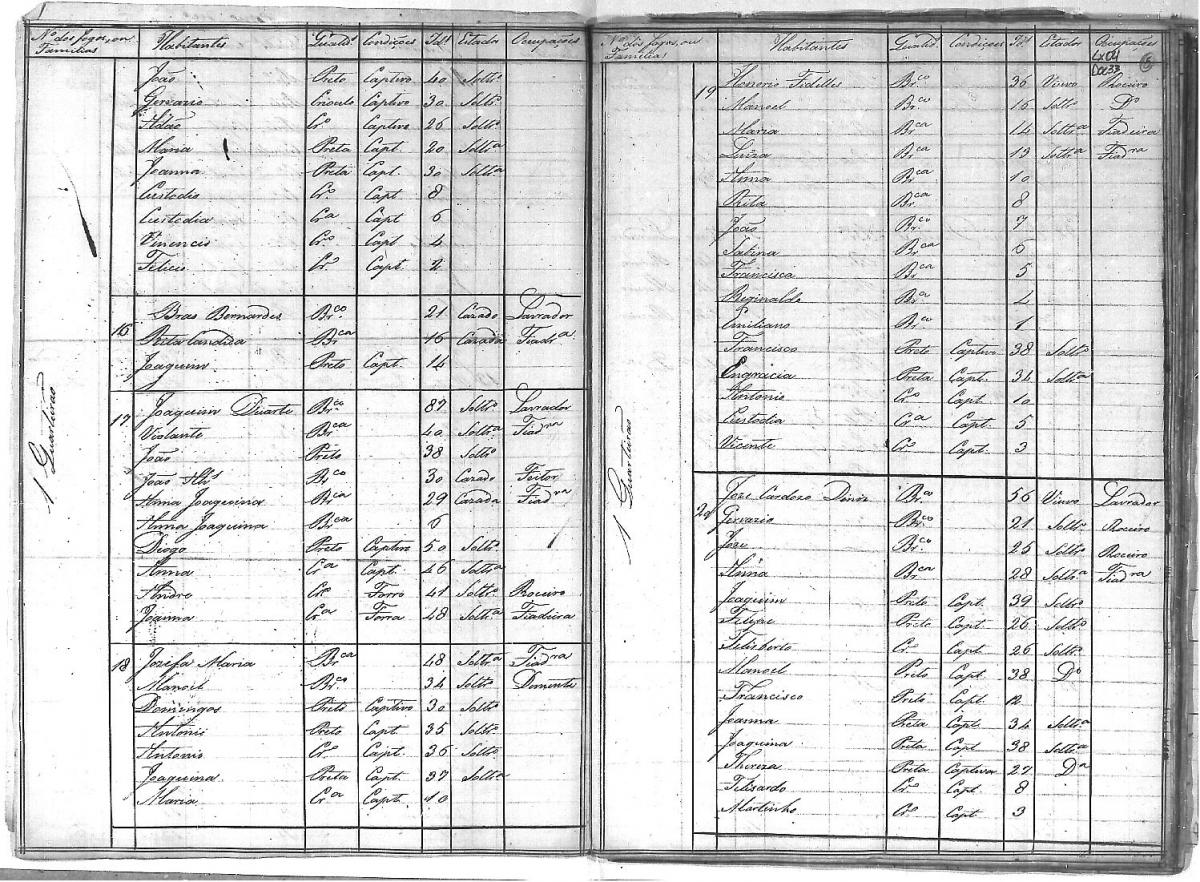 Nº dos fogos, ou Familias Habitantes Qualid.ˢ Condições Id.ᵉ Estados Ocupações
João Preto Captivo 40 Soltrº
Gervazio Crioulo Captivo 30 Soltrº
Adão Crº Captivo 26 Soltrº
Maria Preta Capt. 20 Soltrª
Joanna Preta Capt. 30 Soltrª
Custodio Crº Capt 8
Custodia Crª Capt 6
Vicencio Crº Capt 4
Felicio Crº Capt. 2
16 Bras Bernardes Brco 21 Cazado Lavrador
Rita Candida Brca 16 Cazada Fiadrª
Joaquim Preto Capt. 14
17 Joaquim Duarte Brco 87 Soltrº Lavrador
Violante Brca 40 Soltrª Fiadra
João Preto 38 Soltrº
João Alˢ Brco 30 Cazado Feitor
Anna Joaquina Brca 29 Cazada Fiadra
Anna Joaquina Brca 6
Diogo Preto Captivo 50 Soltrº
Anna Crª Capt. 46 Soltrª
Andre Crº Forro 41 Soltrº Roceiro
Joanna Crª Forra 48 Soltrª Fiadeira
18 Jozefa Maria Brca 48 Soltrª Fiadra
Manoel Brco 34 Soltrº Demente
Domingos Preto Captivo 30 Soltrº
Antonio Preto Capt 35 Soltrº
Antonio Crº Capt. 36 Soltrº
Joaquina Preta Capt. 37 Soltrª
Maria Crª Capt. 10
1 Quarteirão
Nº dos fogos, ou Familias Habitantes Qualid.ˢ Condições Id.ᵉ Estados Ocupações
Cx 04
Doc 33
6
19 Honorio Fidelles Brco 36 Viuvo Roceiro
Manoel Brco 16 Soltrº Dº
Maria Brca 14 Soltrª Fiadeira
Luiza Brca 13 Soltrª Fiadra
Anna Brca 10
Rita Brca 8
João Brco 7
Sabina Brca 6
Francisca Brca 5
Reginaldo Brº 4
Emiliano Brco 1
Francisco Preto Captivo 38 Soltrº
Engracia Preta Capt. 34 Soltrª
Antonio Crº Capt. 10
Custodia Crª Capt. 5
Vicente Crº Capt. 3
20 Joze Cardozo Diniz Brco 56 Viuvo Lavrador
Gervazio Brco 21 Soltrº Roceiro
Joze Brco 25 Soltrº Roceiro
Anna Brca 28 Soltrª Fiadra
Joaquim Preto Capt. 39 Soltrº
Felipe Preto Capt. 26 Soltrº
Felisberto Crº Capt. 26 Soltrº
Manoel Preto Capt. 38 Dº
Francisco Preto Capt. 12
Joanna Preta Capt. 34 Soltrª
Joaquina Preta Capt 38 Soltrª
Thereza Preta Captiva 27 Dª
Felisardo Crº Capt. 8
Martinho Crº Capt 3
1 Quarteirão